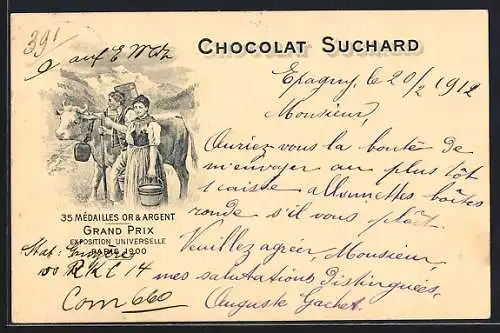 391
CHOCOLAT SUCHARD
Epagny, le 20/2 1912
Monsieur,
Auriez vous la bonté de
m'envoyer au plus tôt
1 caisse allumettes boîtes
ronde s'il vous plaît.
Veuillez agréer, Monsieur,
mes salutations distinguées,
Auguste Gachet.
35 MÉDAILLES OR & ARGENT
GRAND PRIX
EXPOSITION UNIVERSELLE
PARIS 1900
Stat: Gruyère
14
Com 660